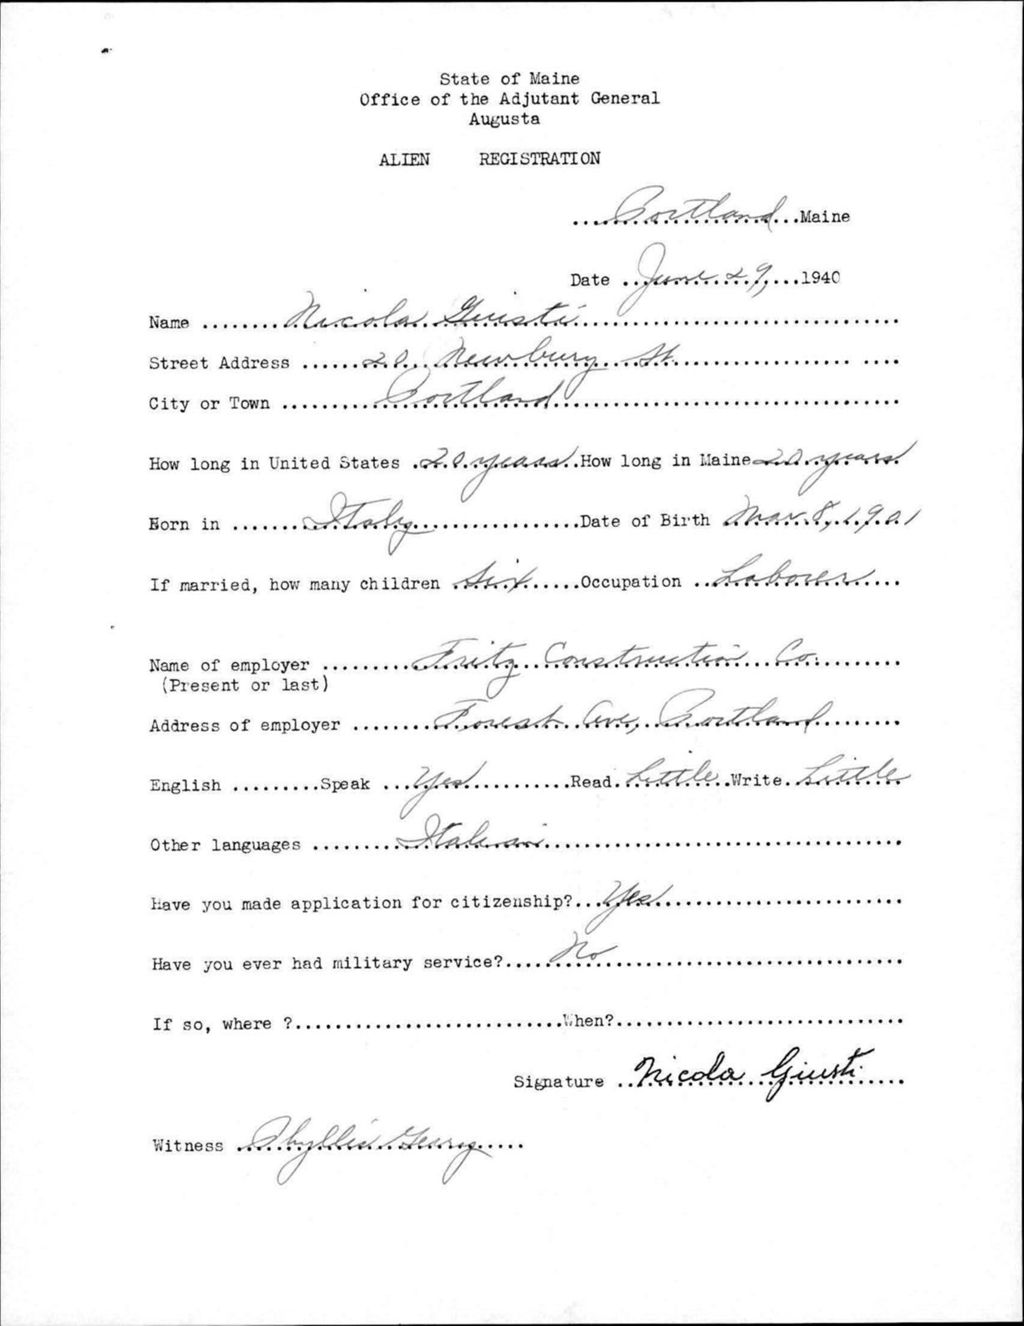 State of Maine
Office of the Adjutant General
Augusta
ALIEN REGISTRATION
Portland Maine
Date June 29, 1940
Name Nicola Giusti
Street Address 20 Newbury St.
City or Town Portland
How long in United States 20 years How long in Maine 20 years
Born in Italy Date of Birth Mar. 8, 1901
If married, how many children Six Occupation Laborer
Name of employer Fritz Construction Co.
(Present or last)
Address of employer Forest Ave, Portland
English Speak Yes Read Little Write Little
Other languages Italian
Have you made application for citizenship? Yes
Have you ever had military service? No
If so, where ? When?
Signature Nicola Giusti
Witness Phyllis Geary